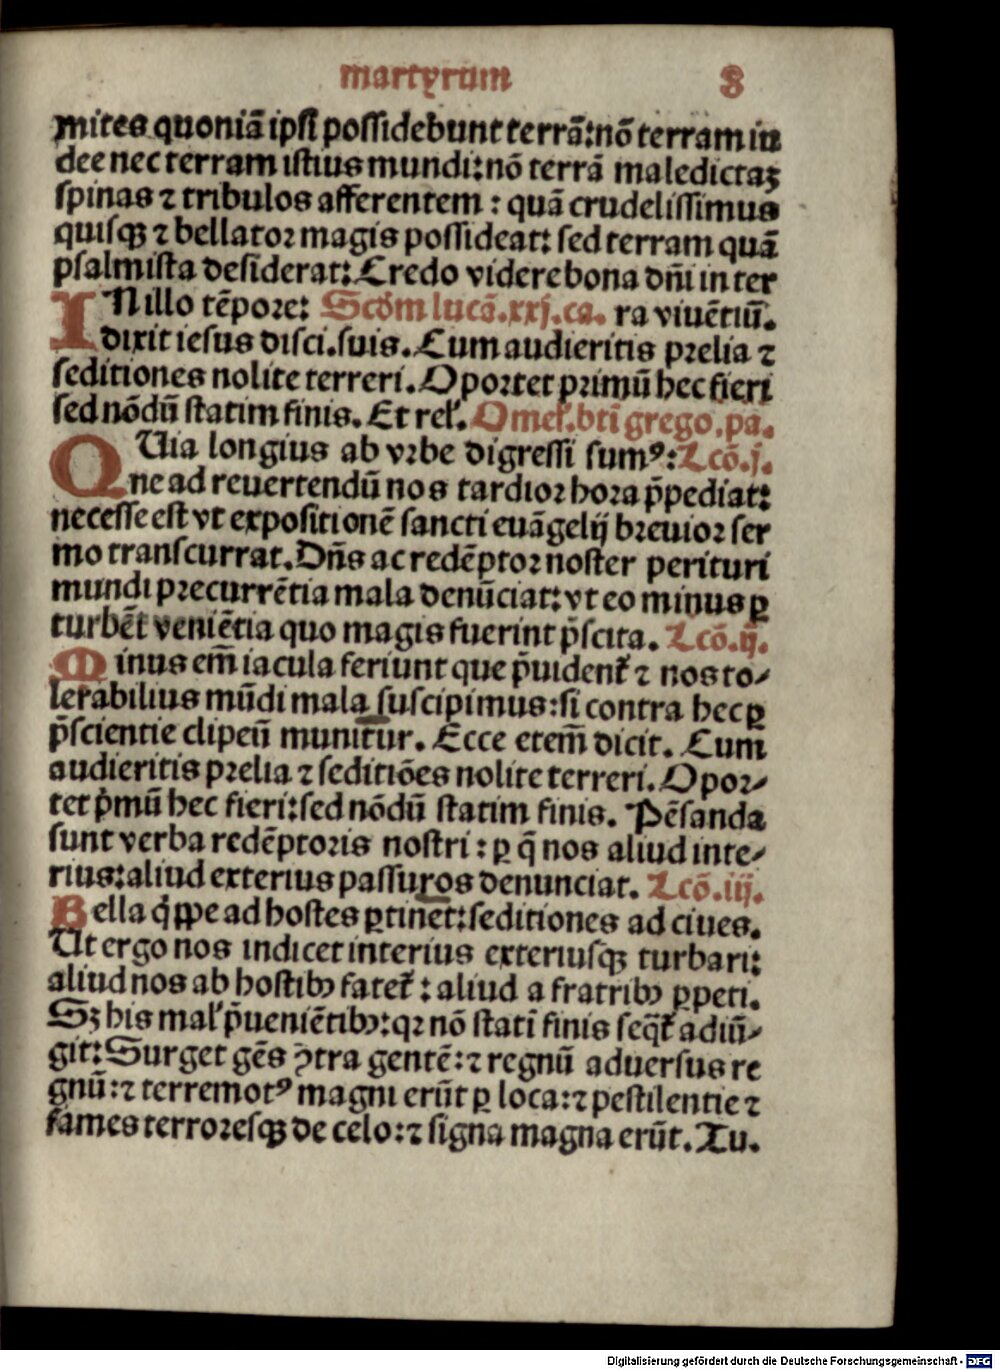 martyrum 8
mites quoniã ipſi poſſidebunt terrã: nõ terram iu
dee nec terram iſtius mundi: nõ terrã maledictaꝫ
ſpinas ⁊ tribulos afferentem : quã crudeliſſimus
quiſqꝫ ⁊ bellatoꝛ magis poſſideat: ſed terram quã
pſalmiſta deſiderat: Credo videre bona dñi in ter
IN illo tẽpoꝛe: Scḋm lucã.xxj.ca. ra viuẽtiũ.
dixit ieſus diſci.ſuis. Cum audieritis pꝛelia ⁊
ſeditiones nolite terreri. Opoꝛtet pꝛimũ hec fieri
ſed nõdũ ſtatim finis. Et rel̉. Omel̉.bti̅ grego.pa.
QUia longius ab vꝛbe digreſſi ſumꝰ: Lcõ.j.
ne ad reuertendũ nos tardioꝛ hoꝛa p̃pediat:
neceſſe eſt vt expoſitionẽ ſancti euãgelij bꝛeuioꝛ ſer
mo tranſcurrat. Dñs ac redẽptoꝛ noſter perituri
mundi pꝛecurrẽtia mala denũciat: vt eo minus ꝑ
turbẽt veniẽtia quo magis fuerint p̃ſcita. Lcõ.ij.
Minus em̃ iacula feriunt que p̃uident̉ ⁊ nos to⸗
lerabilius mũdi mala ſuſcipimus: ſi contra hec ꝑ
p̃ſcientie clipeũ munitur. Ecce etem̃ dicit. Cum
audieritis pꝛelia ⁊ ſeditiões nolite terreri. Opoꝛ⸗
tet p̓mũ hec fieri: ſed nõdũ ſtatim finis. Pẽſanda
ſunt verba redẽptoꝛis noſtri : ꝑ q̃ nos aliud inte⸗
rius: aliud exterius paſſuros denunciat. Lcõ.iij.
Bella q̓ppe ad hoſtes ꝑtinet: ſeditiones ad ciues.
Ut ergo nos indicet interius exteriuſqꝫ turbari:
aliud nos ab hoſtibꝰ fatet̉ : aliud a fratribꝰ ꝑpeti.
Sꝫ his mal̉ p̃ueniẽtibꝰ: qꝛ nõ ſtati̅ finis ſeq̃t̉ adiũ⸗
git: Surget gẽs ꝯtra gentẽ: ⁊ regnũ aduerſus re
gnũ: ⁊ terremotꝰ magni erũt ꝑ loca: ⁊ peſtilentie ⁊
fames terroꝛeſqꝫ de celo: ⁊ ſigna magna erũt. Tu.
Digitalisierung gefördert durch die Deutsche Forschungsgemeinschaft - DFG